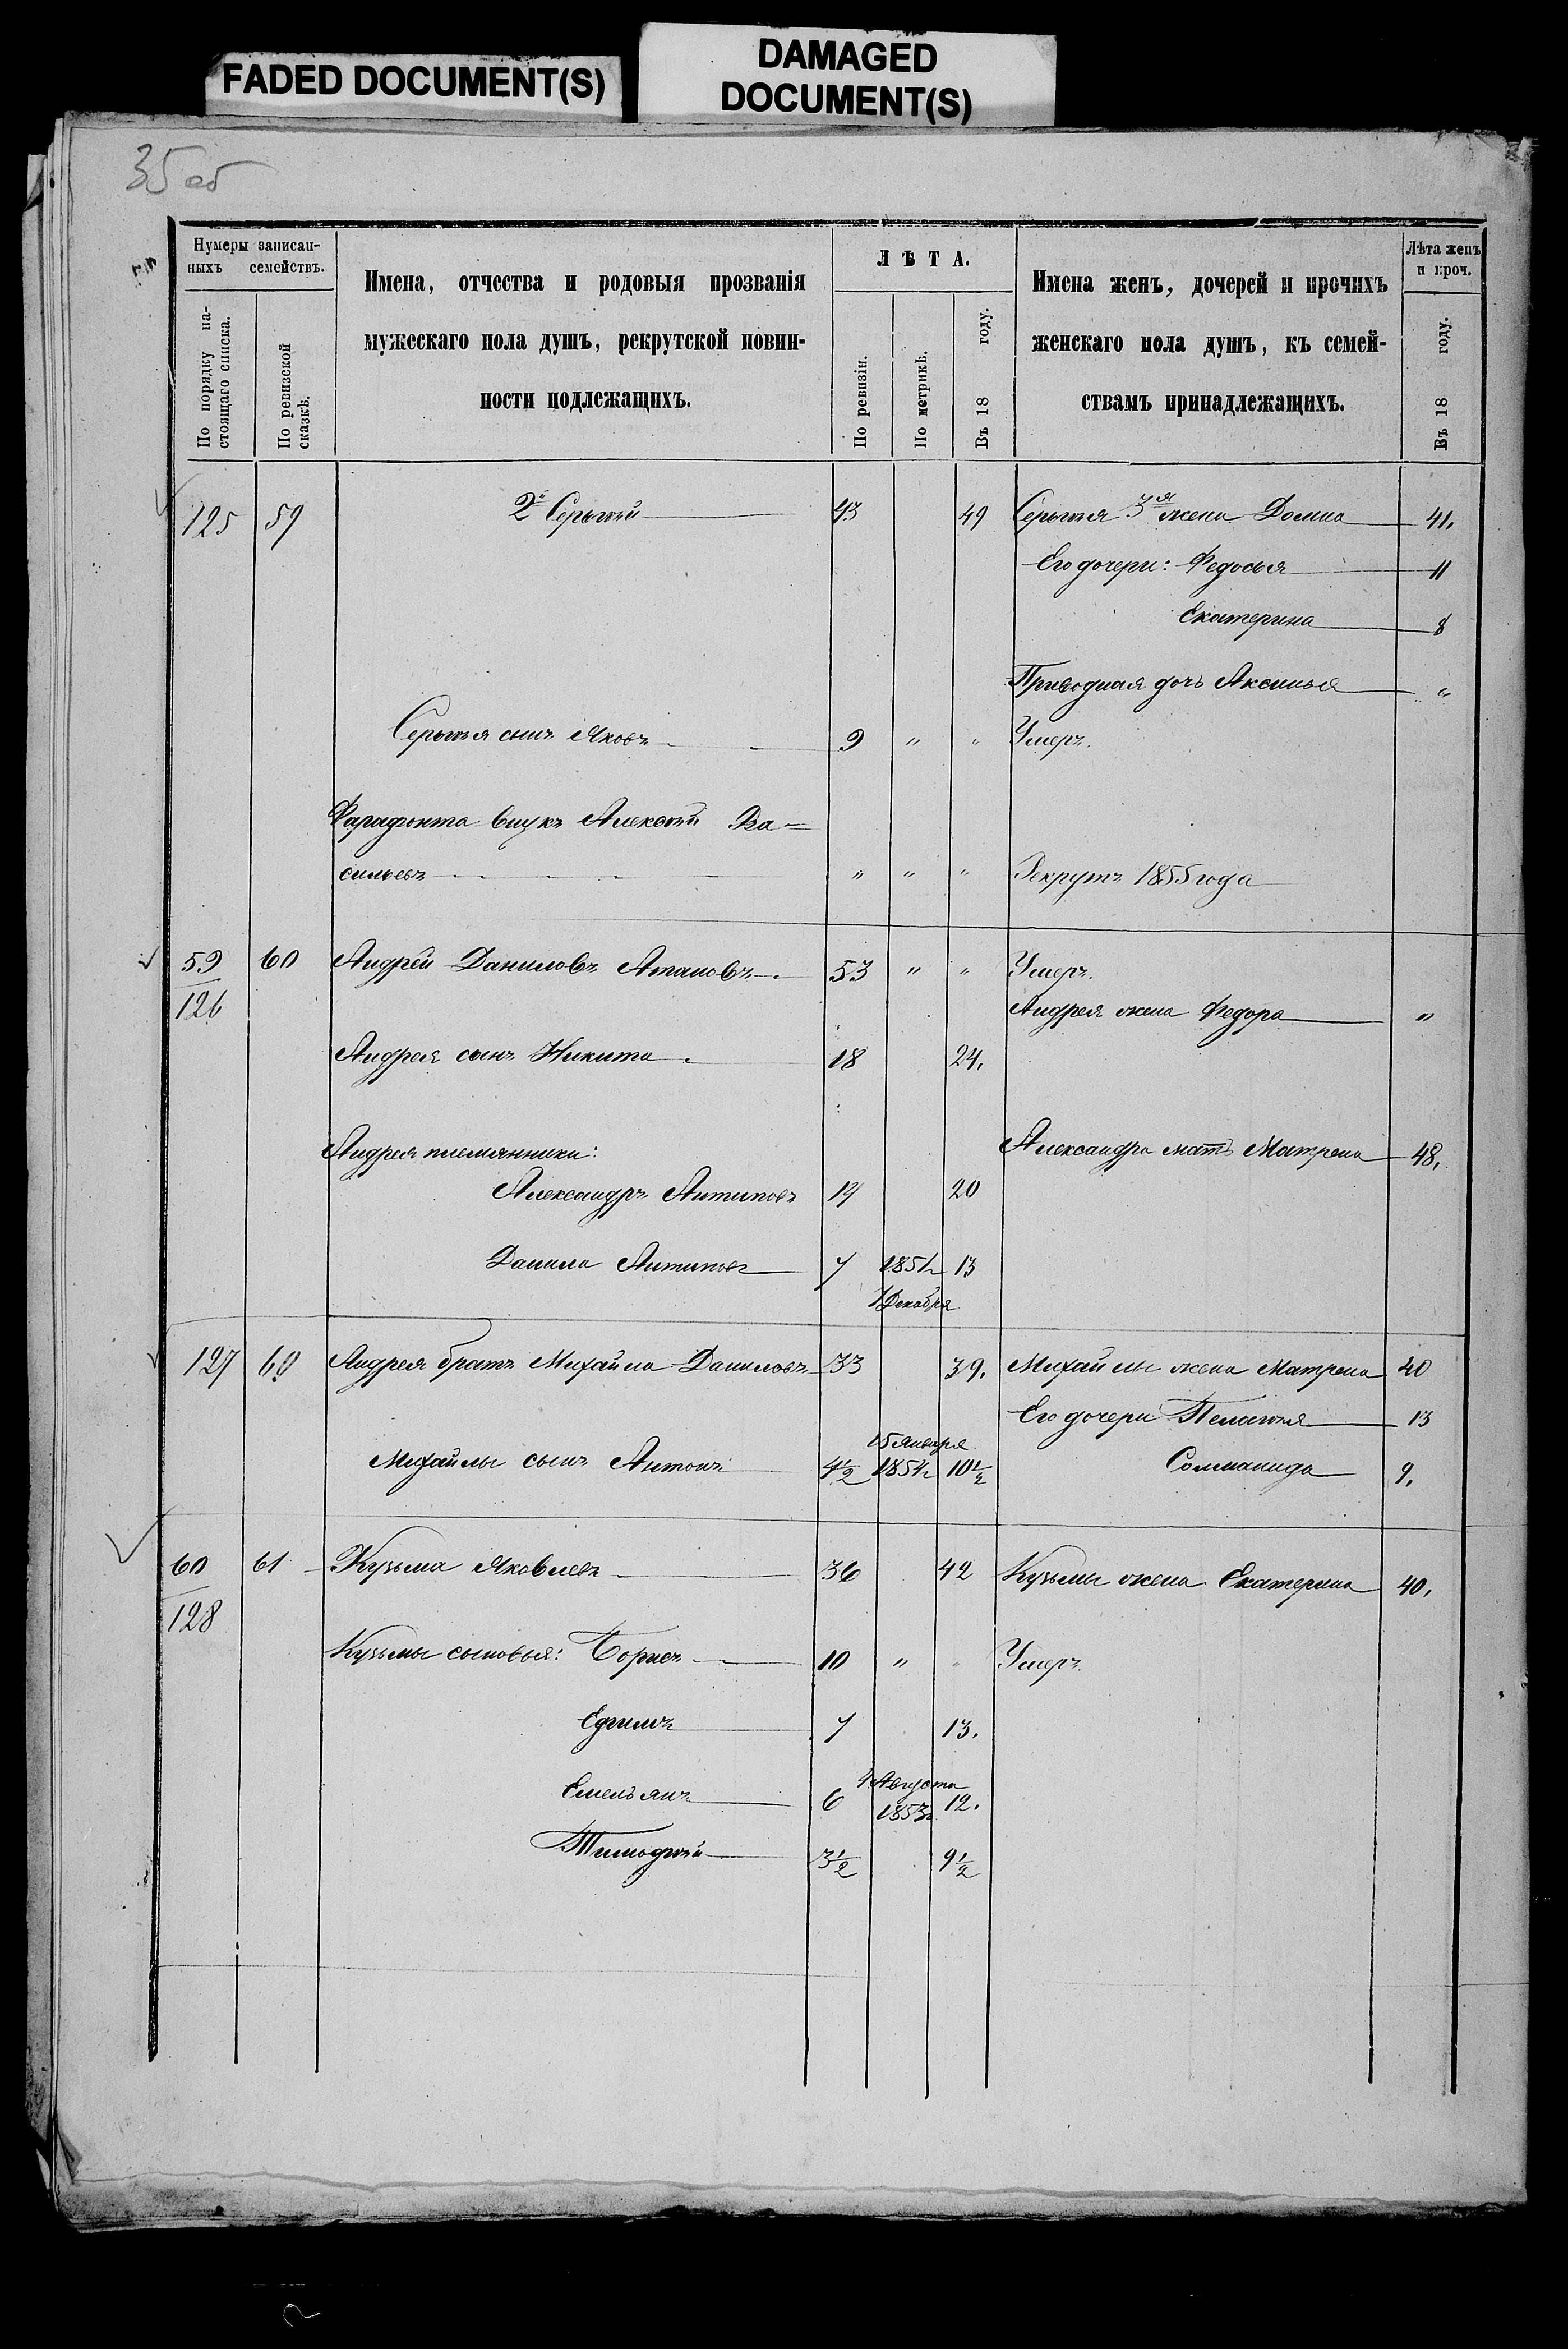 FADED DOCUMENT(S)
DAMAGED
DOCUMENT(S)
35 об
Нумеры записан-
ныхъ семействъ.
По порядку на-
стоящаго списка.
По ревизской
сказкѣ.
Имена, отчества и родовыя прозванія
мужескаго пола душъ, рекрутской повин-
ности подлежащихъ.
ЛѢТА.
По ревизіи.
По метрикѣ.
Въ 18 году.
Имена женъ, дочерей и прочихъ
женскаго пола душъ, къ семей-
ствамъ принадлежащихъ.
Лѣта женъ
и проч.
Въ 18 году.
125 59 2й Сергѣй 43 49 Сергѣя 3я жена Домна 41.
Его дочери: Федосья 11
Екатерина 8
Приводная дочь Аксинья "
Сергѣя сынъ Яковъ 9 " " Умеръ.
Фарафонта внукъ Алексѣй Ва-
сильевъ " " " Рекрутъ 1855 года
59 60 Андрей Даниловъ Атановъ 53 " " Умеръ.
126 Андрея жена Федора "
Андрея сынъ Никита 18 24.
Андрея племянники: Александра мать Матрена 48.
Александръ Антиповъ 14 20
Данила Антиповъ 7 1851г 13
1 Декабря
127 60 Андрея братъ Михайла Даниловъ 33 39. Михайлы жена Матрена 40
Его дочери Пелагѣя 13
15 Января
Михайлы сынъ Антонъ 4½ 1854г 10½ Соломанида 9.
60 61 Кузьма Яковлевъ 36 42 Кузьмы жена Екатерина 40.
128
Кузьмы сыновья: Борисъ 10 " " Умеръ.
Ефимъ 7 13.
Августа
Емельянъ 6 1853г 12.
Тимофѣй 3½ 9½